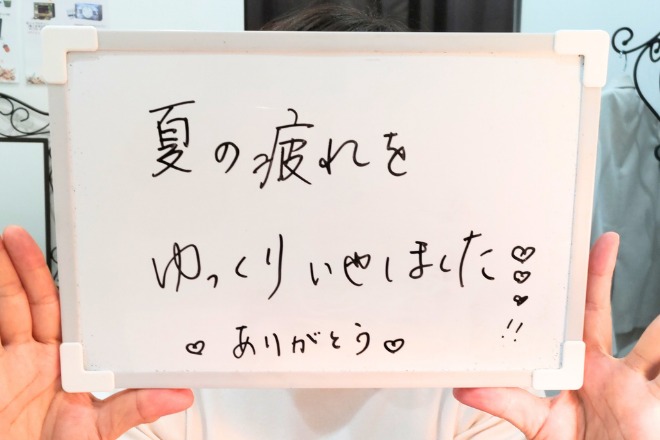 夏の疲れを
ゆっくりいやしました♡♡♡!!
♡ ありがとう ♡